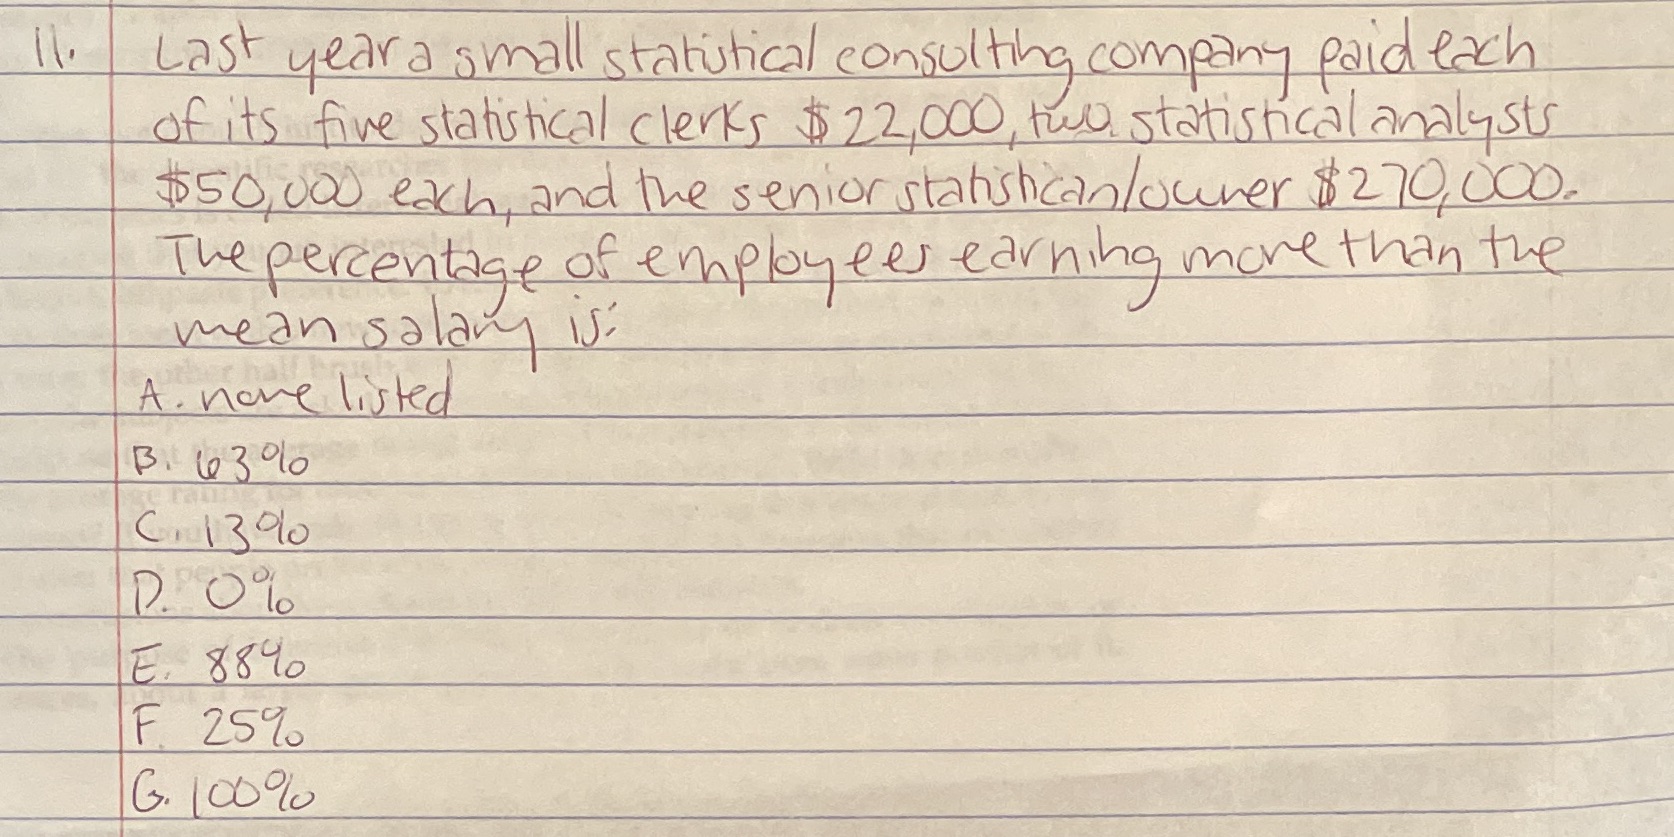 11. Last year a small statistical consulting company paid each
of its five statistical clerks $22,000, two statistical analysts
$50,000 each, and the senior statistician/owner $270,000.
The percentage of employees earning more than the
mean salary is:
A. none listed
B. 63%
C. 13%
D. 0%
E. 88%
F. 25%
G. 100%